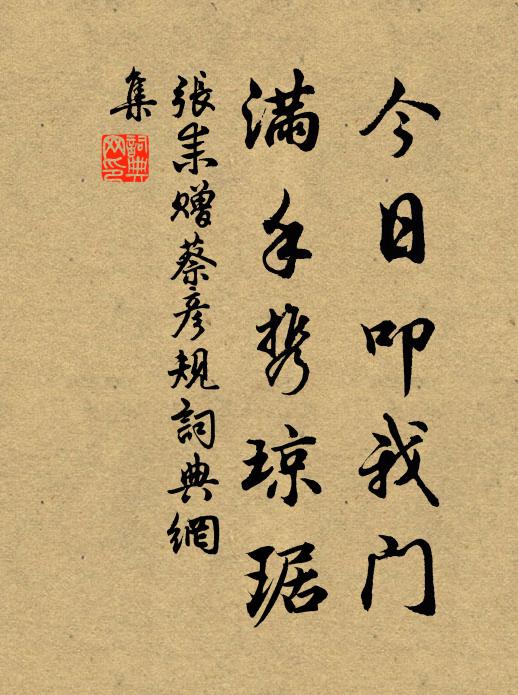 今日叩我门
满手携琼琚
張耒贈蔡彦規詞典網
集
詞典
网印